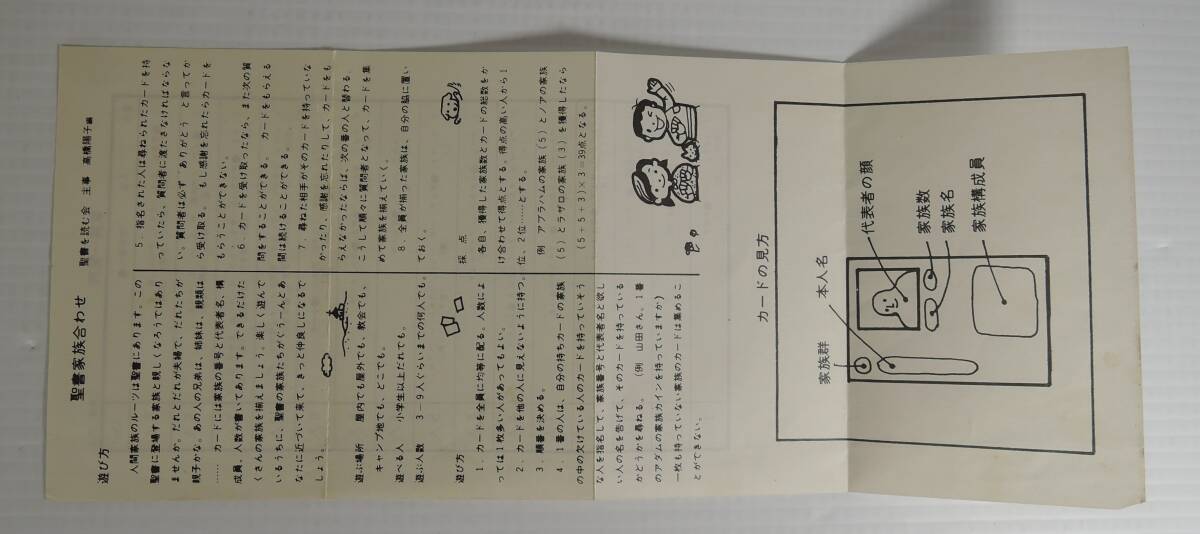 聖書家族合わせ
聖書を読む会 主事 高橋陽子編
遊び方
人間家族のルーツは聖書にあります。この
聖書に登場する家族と親しくなろうではあり
ませんか。だれとだれが夫婦で、だれたちが
親子かな。あの人の兄弟は、姉妹は、親類は
…… カードには家族の番号と代表者名、構
成員。人数が書いてあります。できるだけた
くさんの家族を揃えましょう。楽しく遊んで
いるうちに、聖書の家族たちがぐうーんとあ
なたに近づいて来て、きっと仲良しになるで
しょう。
遊ぶ場所 屋内でも屋外でも、教会でも、
キャンプ地でも、どこでも。
遊べる人 小学生以上だれでも。
遊ぶ人数 3−9人ぐらいまでの何人でも。
遊び方
1．カードを全員に均等に配る。人数によ
っては1枚多い人があってもよい。
2．カードを他の人に見えないように持つ。
3 順番を決める。
4．1番の人は、自分の持ちカードの家族
の中の欠けている人のカードを持っていそう
な人を指名して、家族番号と代表者名と欲し
い人の名を告げて、そのカードを持っている
かどうかを尋ねる。（例 山田さん。1番
のアダムの家族カインを持っていますか）
一枚も持っていない家族のカードは集めるこ
とができない。
5．指名された人は尋ねられたカードを持
っていたら、質問者に渡たさなければならな
い。質問者は必ず ありがとう と言ってか
ら受け取る。もし感謝を忘れたらカードを
もらうことができない。
6．カードを受け取ったなら、また次の質
問をすることができる。 カードをもらえる
間は続けることができる。
7．尋ねた相手がそのカードを持っていな
かったり、感謝を忘れたりして、カードをも
らえなかったならば、次の番の人と替わる。
こうして順々に質問者となって、カードを集
めて家族を揃えていく。
8．全員が揃った家族は、自分の脇に置い
ておく。
採 点
各自、獲得した家族数とカードの総数をか
け合わせて得点とする。得点の高い人から1
位、2位……とする。
例 アブラハムの家族（5）とノアの家族
（5）とラザロの家族（3）を獲得したなら
（5＋5＋3）×3＝39点となる。
カードの見方
家族群
本人名
代表者の顔
家族数
家族名
家族構成員